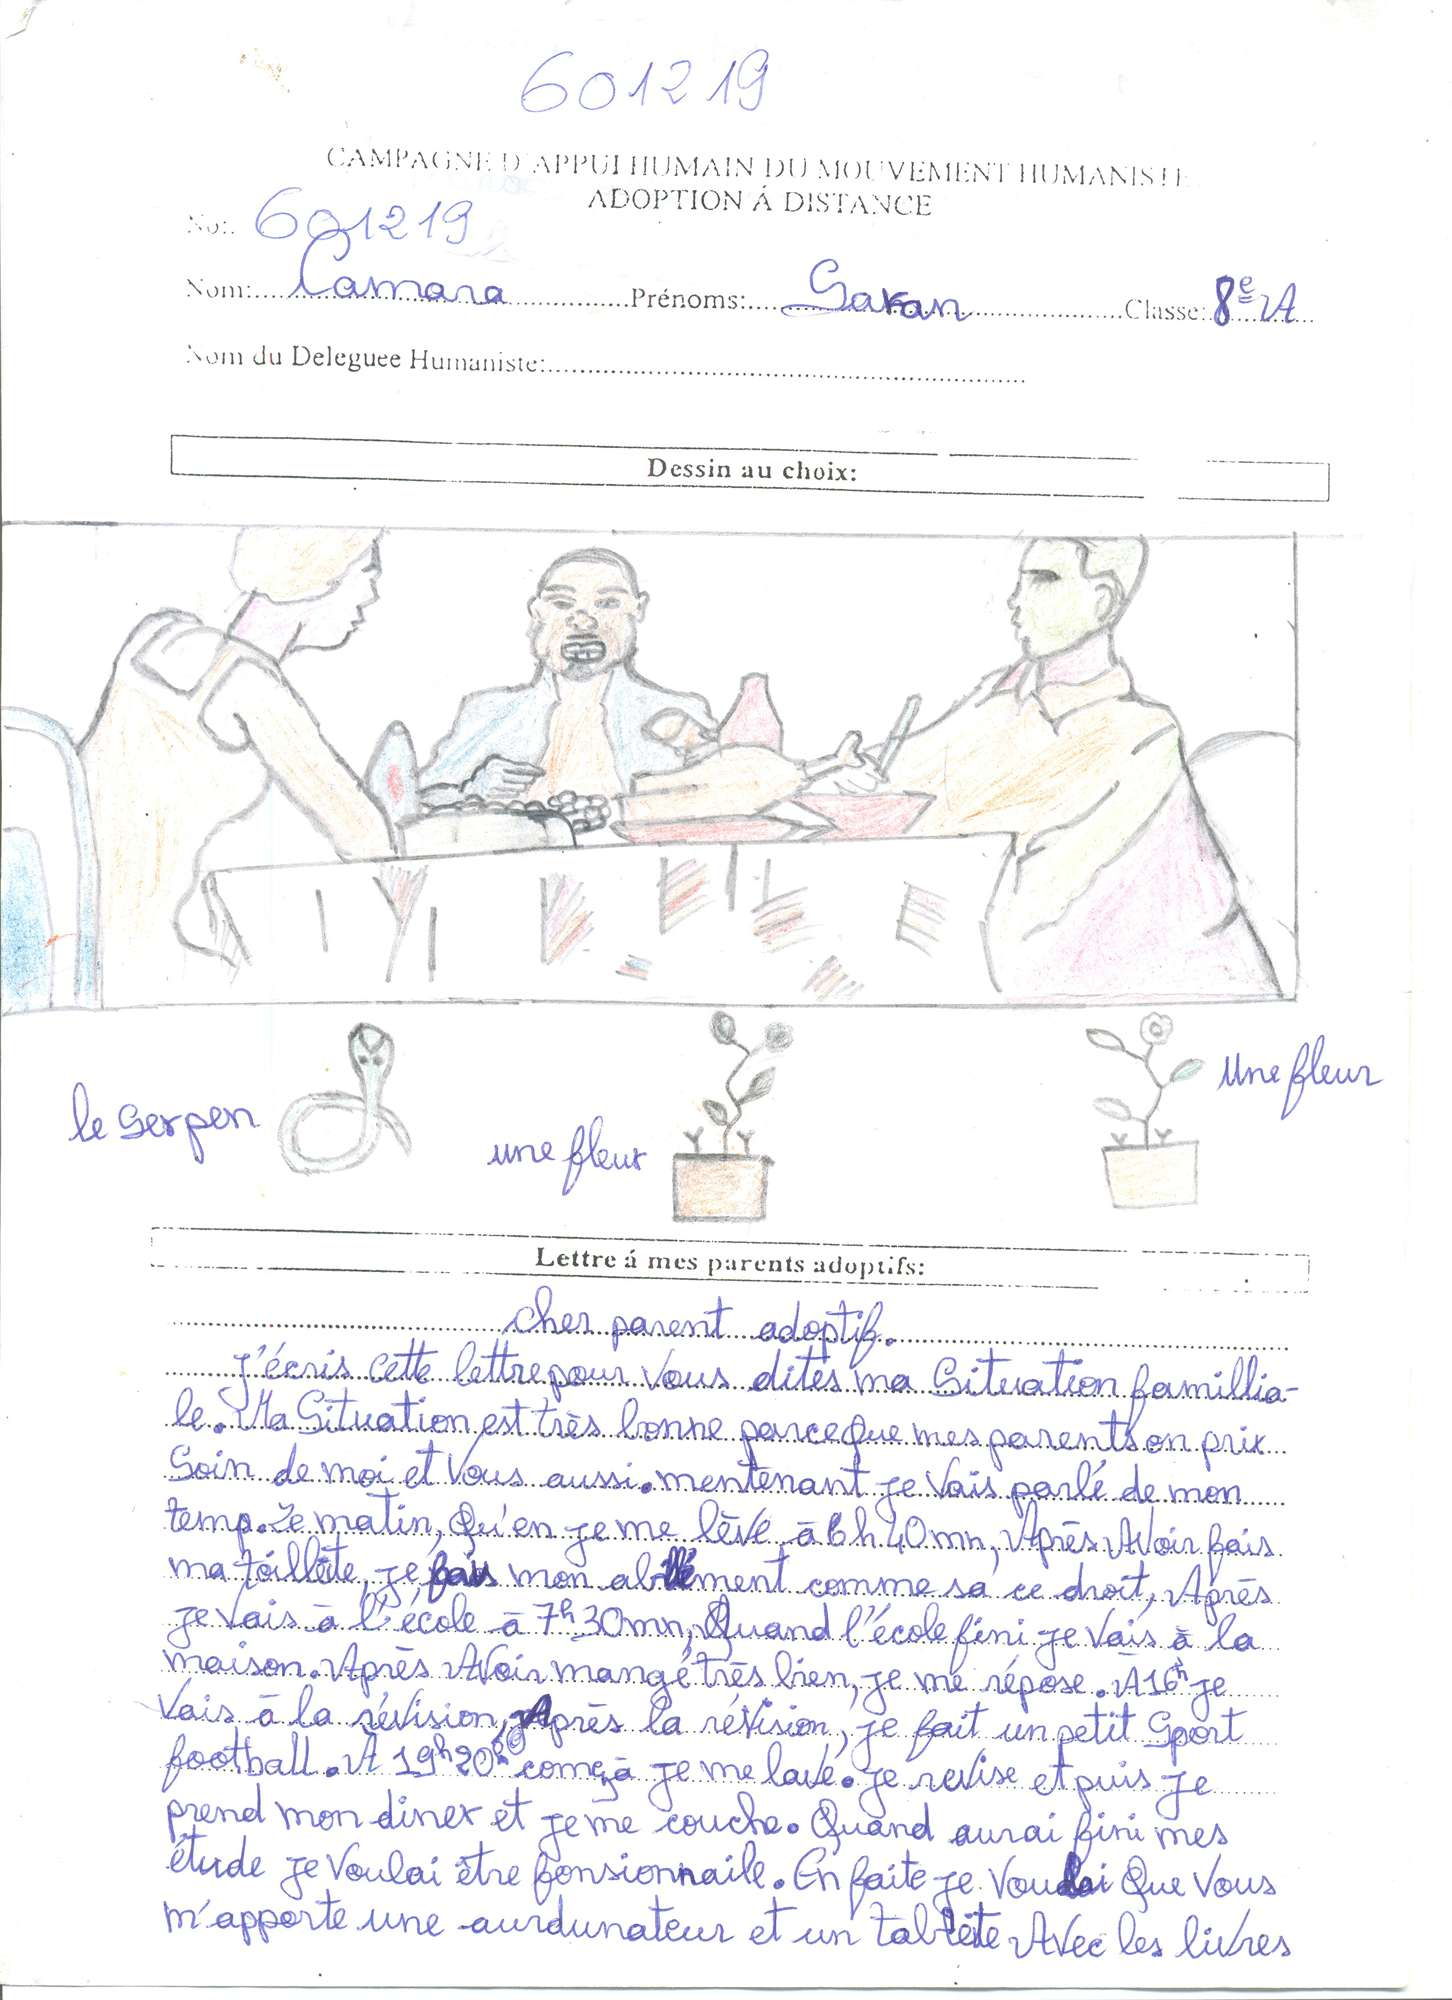 601219
CAMPAGNE D'APPUI HUMAIN DU MOUVEMENT HUMANISTE
ADOPTION Á DISTANCE
No:. 601219
Nom: Camara Prénoms: Saran Classe: 8e A
Nom du Deleguee Humaniste:
Dessin au choix:
le Serpen
une fleur
Une fleur
Lettre á mes parents adoptifs:
cher parent adoptif.
J'écris cette lettre pour vous dites ma Situation famillia-
le. Ma Situation est très bonne parceque mes parents on prix
Soin de moi et Vous aussi. mentenant je Vais parlé de mon
temp. Le matin, Qu'en je me lève à 6h 40mn, Après Avoir fais
ma toillète, je fais mon abillément comme sa ce droit, Après
je Vais à l'école à 7h 30mn, Quand l'école fini je Vais à la
maison. Après Avoir mangé très bien, je me répose. A 16h je
Vais à la révision, Après la révision, je fait un petit Sport
football. A 19h 20 comça je me lave. je revise et puis je
prend mon diner et je me couche. Quand aurai fini mes
étude je Voulai être fonsionnaile. En faite je Voulai Que Vous
m'apporte une aurdunateur et un tablète Avec les livres